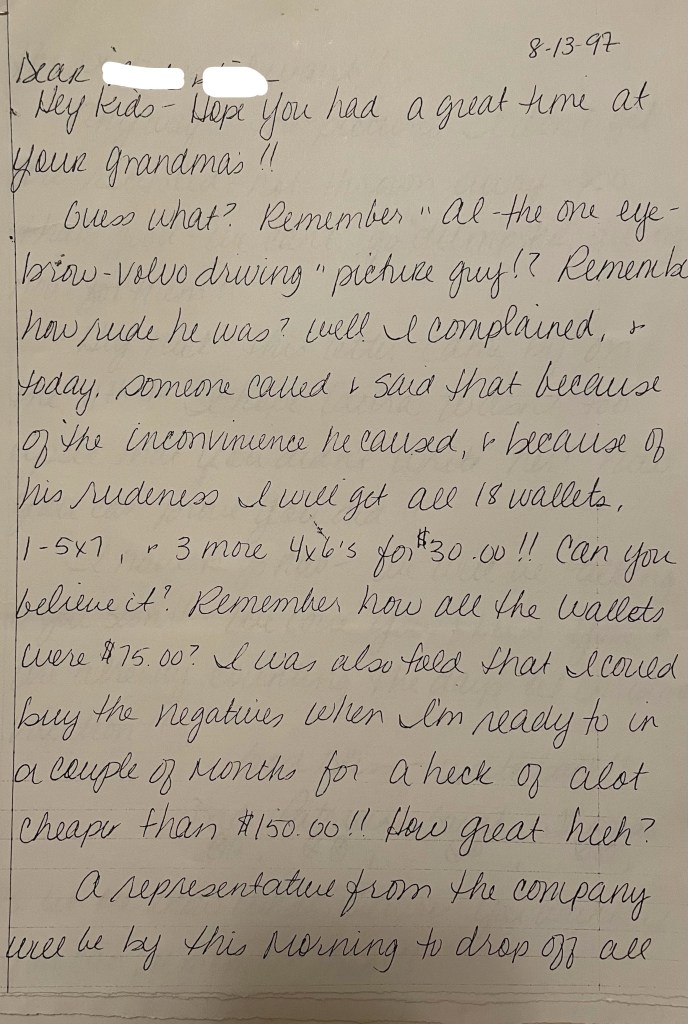 8-13-97
Dear
Hey kids - Hope you had a great time at
your grandma's !!
Guess what? Remember "Al - the one eye-
brow - volvo driving" picture guy!? Remembe
how rude he was? Well I complained, &
today, someone called & said that because
of the inconvinience he caused, & because of
his rudeness I will get all 18 wallets,
1-5x7, & 3 more 4x6's for $30.00 !! Can you
believe it? Remember how all the wallets
were $75.00? I was also told that I could
buy the negatives when I'm ready to in
a couple of months for a heck of alot
cheaper than $150.00 !! How great huh?
A representative from the company
will be by this morning to drop off all